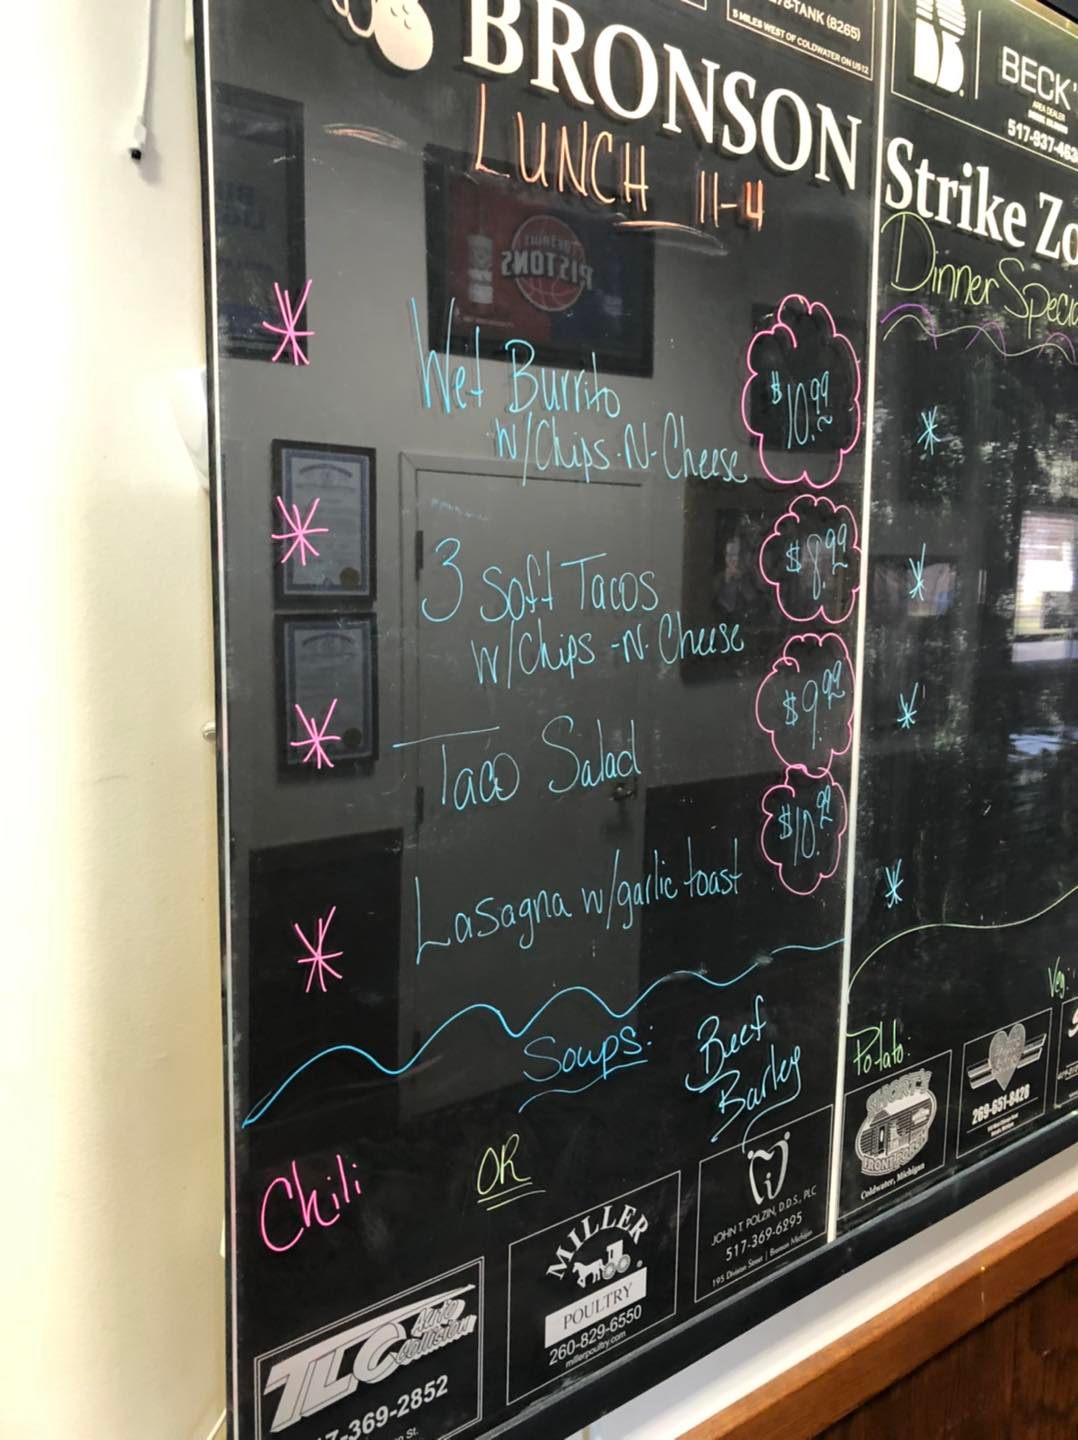 278-TANK (8265)
5 MILES WEST OF COLDWATER ON US 12
BRONSON
LUNCH 11-4
PISTONS
Wet Burrito
w/Chips-N-Cheese
$10.99
3 Soft Tacos
w/Chips-N-Cheese
$8.99
Taco Salad
$9.99
Lasagna w/garlic toast
$10.99
Soups:
Beef
Barley
OR
Chili
TLC Auto
Collision
7-369-2852
MILLER
POULTRY
260-829-6550
millerpoultry.com
JOHN T. POLZIN, D.D.S., PLC
517-369-6295
195 Division Street | Bronson Michigan
BECK'
AREA DEALER
517-937-463
Strike Zo
Dinner Specia
Veg.
Potato:
SHORT'S
FRONT PORCH
Coldwater, Michigan
269-651-8428